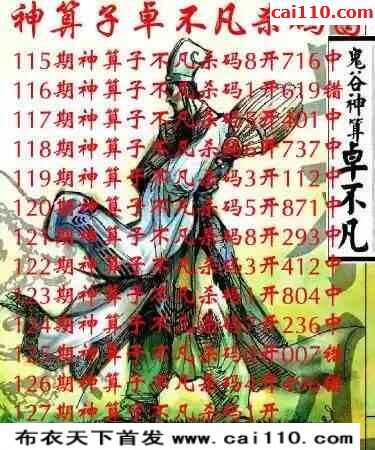 cai110.com
神算子卓不凡杀码图
鬼谷神算卓不凡
115期神算子不凡杀码8开716中
116期神算子不凡杀码1开619错
117期神算子不凡杀码 开401中
118期神算子不凡杀码 开737中
119期神算子不凡杀码3开112中
120期神算子不凡杀码5开871中
121期神算子不凡杀码8开293中
122期神算子不凡杀码3开412中
123期神算子不凡杀码1开804中
124期神算子不凡杀码7开236中
125期神算子不凡杀码 开007错
126期神算子不凡杀码4开 错
127期神算子不凡杀码1开
布衣天下首发 www.cai110.com